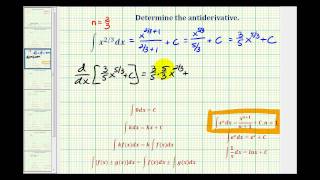 n = 2/3
Determine the antiderivative.
∫ x^{2/3} dx = x^{2/3+1}/(2/3+1) + C = x^{5/3}/(5/3) + C = 3/5 x^{5/3} + C
d/dx [3/5 x^{5/3} + C] = 3/5 · 5/3 x^{2/3} +
∫ 0dx = C
∫ kdx = kx + C
∫ kf(x)dx = k ∫ f(x)dx
∫ [f(x) ± g(x)]dx = ∫ f(x)dx ± ∫ g(x)dx
∫ x^n dx = x^{n+1}/(n+1) + C, n ≠ -1
∫ e^x dx = e^x + C
∫ 1/x dx = ln x + C